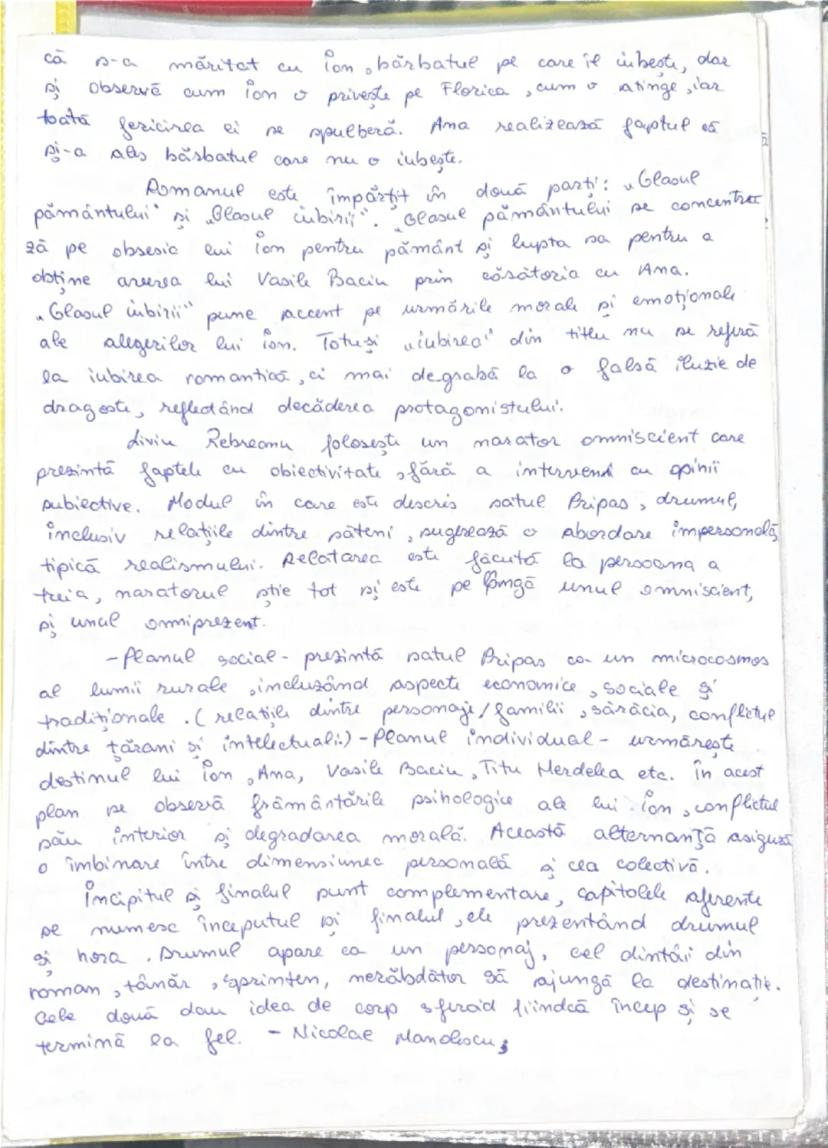 că s-a măritat cu Ion, bărbatul pe care îl iubește, dar
și observă cum Ion o privește pe Florica, cum o atinge, iar
toată fericirea ei se spulberă. Ana realizează faptul că
și-a ales bărbatul care nu o iubește.
Romanul este împărțit în două părți: „Glasul
pământului" și „Glasul iubirii". „Glasul pământului se concentrea
ză pe obsesia lui Ion pentru pământ și lupta sa pentru a
obține averea lui Vasile Baciu prin căsătoria cu Ana.
„Glasul iubirii" pune accent pe urmările morale și emoționale
ale alegerilor lui Ion. Totuși „iubirea" din titlu nu se referă
la iubirea romantică, ci mai degrabă la o falsă iluzie de
dragoste, reflectând decăderea protagonistului.
Liviu Rebreanu folosește un narator omniscient care
prezintă faptele cu obiectivitate, fără a interveni cu opinii
subiective. Modul în care este descris satul Pripas, drumul,
inclusiv relațiile dintre săteni, sugerează o abordare impersonală,
tipică realismului. Relatarea este făcută la persoana a
treia, naratorul știe tot și este pe lângă unul omniscient,
și unul omniprezent.
-Planul social- prezintă satul Pripas ca un microcosmos
al lumii rurale, incluzând aspecte economice, sociale și
tradiționale. (relațiile dintre personaje/familii, sărăcia, conflictul
dintre țărani și intelectuali.) -Planul individual- urmărește
destinul lui Ion, Ana, Vasile Baciu, Titu Herdelea etc. În acest
plan se observă frământările psihologice ale lui Ion, conflictul
său interior și degradarea morală. Această alternanță asigură
o îmbinare între dimensiunea personală și cea colectivă.
Incipitul și finalul sunt complementare, capitolele aferente
se numesc începutul și finalul, ele prezentând drumul
și hora. Drumul apare ca un personaj, cel dintâi din
roman, tânăr, sprinten, nerăbdător să ajungă la destinație.
Cele două dau idea de corp sferoid fiindcă încep și se
termină la fel. - Nicolae Manolescu;